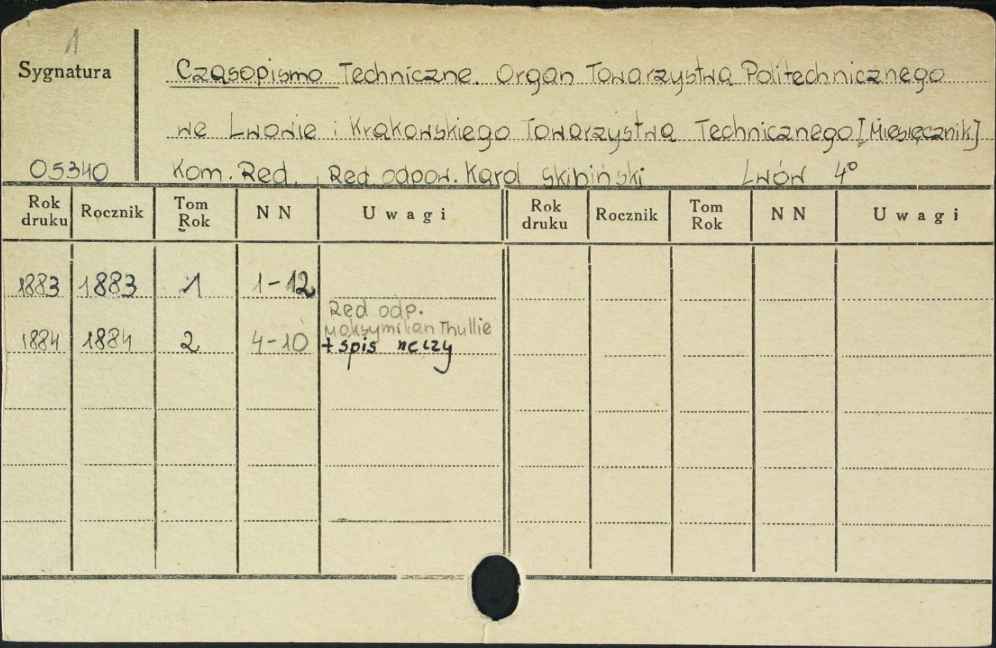 1
Sygnatura
Czasopismo Techniczne. Organ Towarzystwa Politechnicznego
we Lwowie i Krakowskiego Towarzystwa Technicznego [Miesięcznik]
05340 Kom. Red., Red. odpow. Karol Skibiński Lwów 4°
Rok druku Rocznik Tom Rok NN Uwagi Rok druku Rocznik Tom Rok NN Uwagi
1883 1883 1 1-12
Red odp.
Maksymilian Thullie
1884 1884 2 4-10 + spis rzeczy